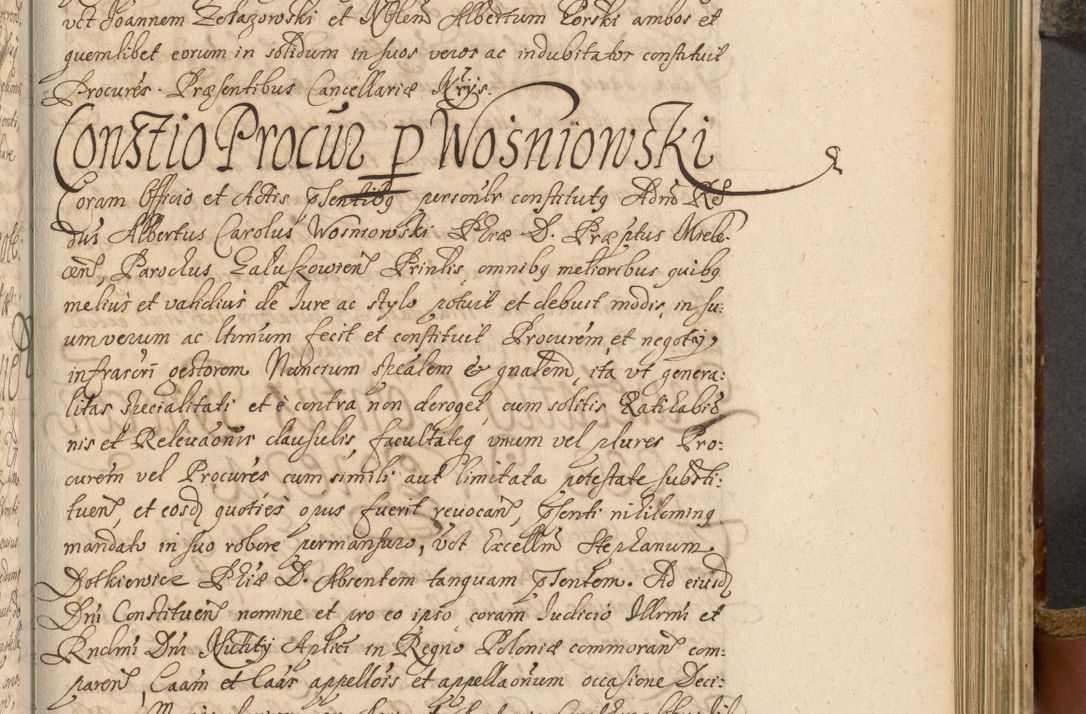 vct Joannem Zelazowski et Nblem Albertum Gorski ambos et
quemlibet eorum in solidum in suos veros ac indubitator constituit
Procures. Præsentibus Cancellariæ
Constio Procur p Wosniowski
Coram Officio et Actis psentibq personlr constitutq Admd Re
dus Albertus Carolus Wosniowski Phiæ D. Præptus Miele.
cen, Parochus Zaluszowien Prinlis, omnibq melioribus quibq
melius et validius de Jure ac stylo potuit et debuit modis, in su:
um verum ac ltimum fecit et constituit Procurem et negotij
infrascri gestorem Nuncium spealem & gnalem, ita vt genera:
litas specialitati et è contra non deroget, cum solitis Ratihabio
nis et Releuaonis clausulis, facultateq vnum vel plures Pro:
curem vel Procures cum simili aut limitata potestate substi:
tuen, et eosd quoties opus fuerit reuocan, psenti nihilominq
mandato in suo robore permansuro, vct Excellm Stephanum
Dotkiewicz Phiæ D. Absentem tanquam psentem. Ad eiusd
Dni Constituen nomine et pro eo ipso coram Judicio Illrmi et
Rndmi Dni Nuntij Aplici in Regno Poloniæ commoran com:
paren, Caam et Caas appellois et appellaonum occasione Deci: